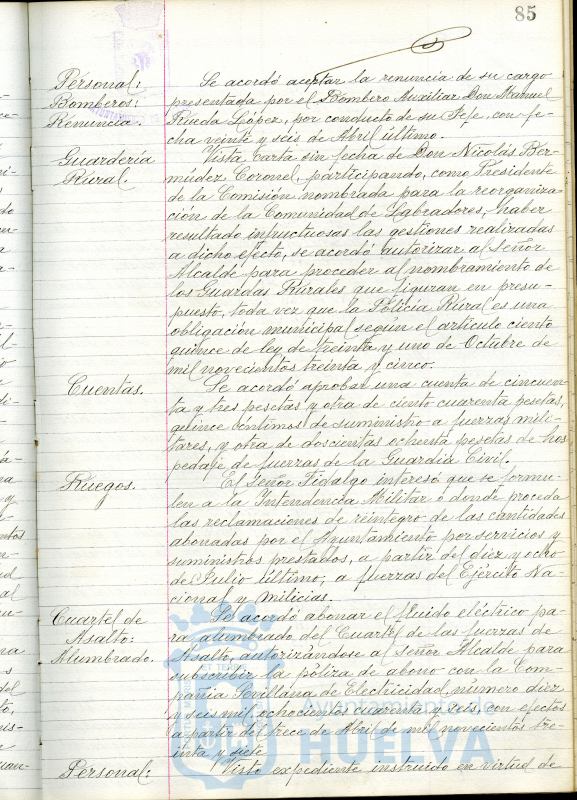 85
Personal:
Bomberos:
Renuncia.
Se acordó aceptar la renuncia de su cargo
presentada por el Bombero Auxiliar Don Manuel
Rueda López, por conducto de su Jefe, con fe-
cha veinte y seis de Abril último.
Guardería
Rural.
Vista carta sin fecha de Don Nicolás Ber-
múdez Coronel, participando, como Presidente
de la Comisión nombrada para la reorganiza-
ción de la Comunidad de Labradores, haber
resultado infructuosas las gestiones realizadas
a dicho efecto, se acordó autorizar al Señor
Alcalde para proceder al nombramiento de
los Guardas Rurales que figuran en presu-
puesto, toda vez que la Policía Rural es una
obligación municipal según el artículo ciento
quince de ley de treinta y uno de Octubre de
mil novecientos treinta y cinco.
Cuentas.
Se acordó aprobar una cuenta de cincuen-
ta y tres pesetas y otra de ciento cuarenta pesetas,
quince céntimos de suministro a fuerzas mili-
tares, y otra de doscientas ochenta pesetas de hos-
pedaje de fuerzas de la Guardia Civil.
Ruegos.
El Señor Fidalgo interesó que se formu-
len a la Intendencia Militar o donde proceda
las reclamaciones de reintegro de las cantidades
abonadas por el Ayuntamiento por servicios y
suministros prestados, a partir del diez y ocho
de Julio último, a fuerzas del Ejército Na-
cional y Milicias.
Cuartel de
Asalto:
Alumbrado.
Se acordó abonar el fluido eléctrico pa-
ra alumbrado del Cuartel de las fuerzas de
Asalto, autorizándose al Señor Alcalde para
subscribir la póliza de abono con la Com-
pañía Sevillana de Electricidad, número diez
y seis mil ochocientos cuarenta y seis, con efectos
a partir del trece de Abril de mil novecientos tre-
inta y siete.
Personal:
Visto expediente instruido en virtud de
Ayuntamiento de
HUELVA